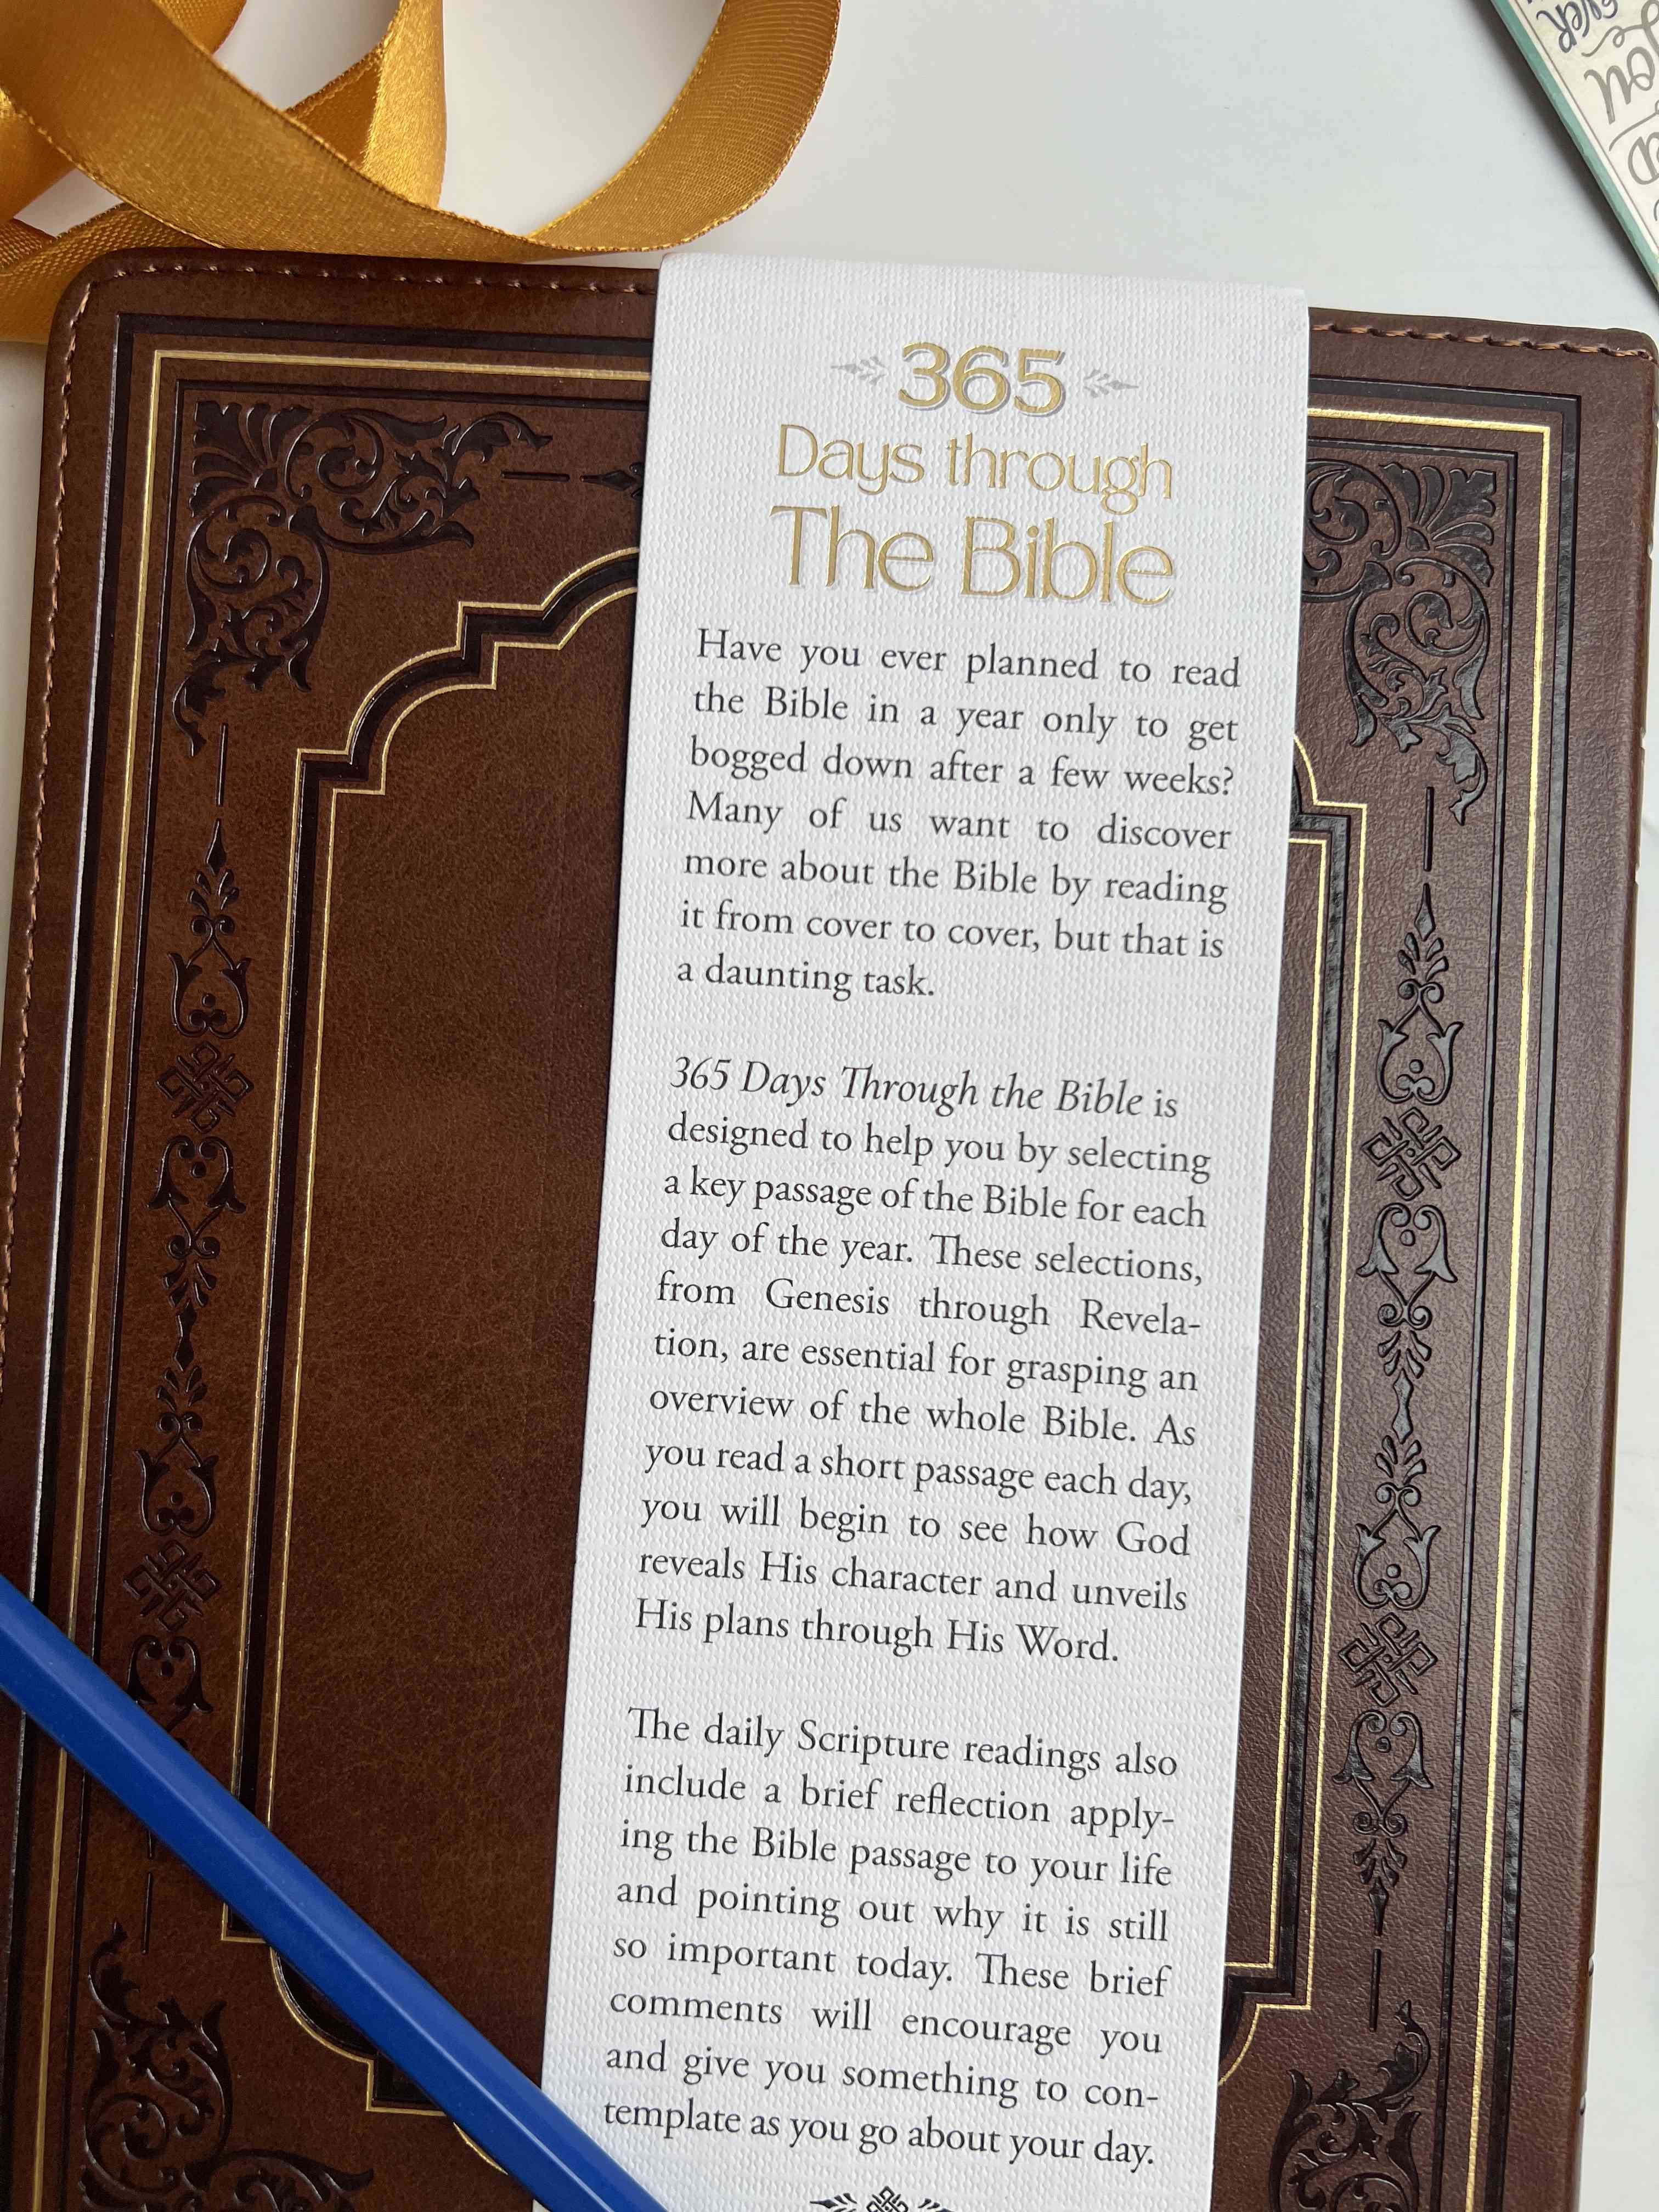 365
Days through
The Bible
Have you ever planned to read
the Bible in a year only to get
bogged down after a few weeks?
Many of us want to discover
more about the Bible by reading
it from cover to cover, but that is
a daunting task.
365 Days Through the Bible is
designed to help you by selecting
a key passage of the Bible for each
day of the year. These selections,
from Genesis through Revela-
tion, are essential for grasping an
overview of the whole Bible. As
you read a short passage each day,
you will begin to see how God
reveals His character and unveils
His plans through His Word.
The daily Scripture readings also
include a brief reflection apply-
ing the Bible passage to your life
and pointing out why it is still
so important today. These brief
comments will encourage you
and give you something to con-
template as you go about your day.
you